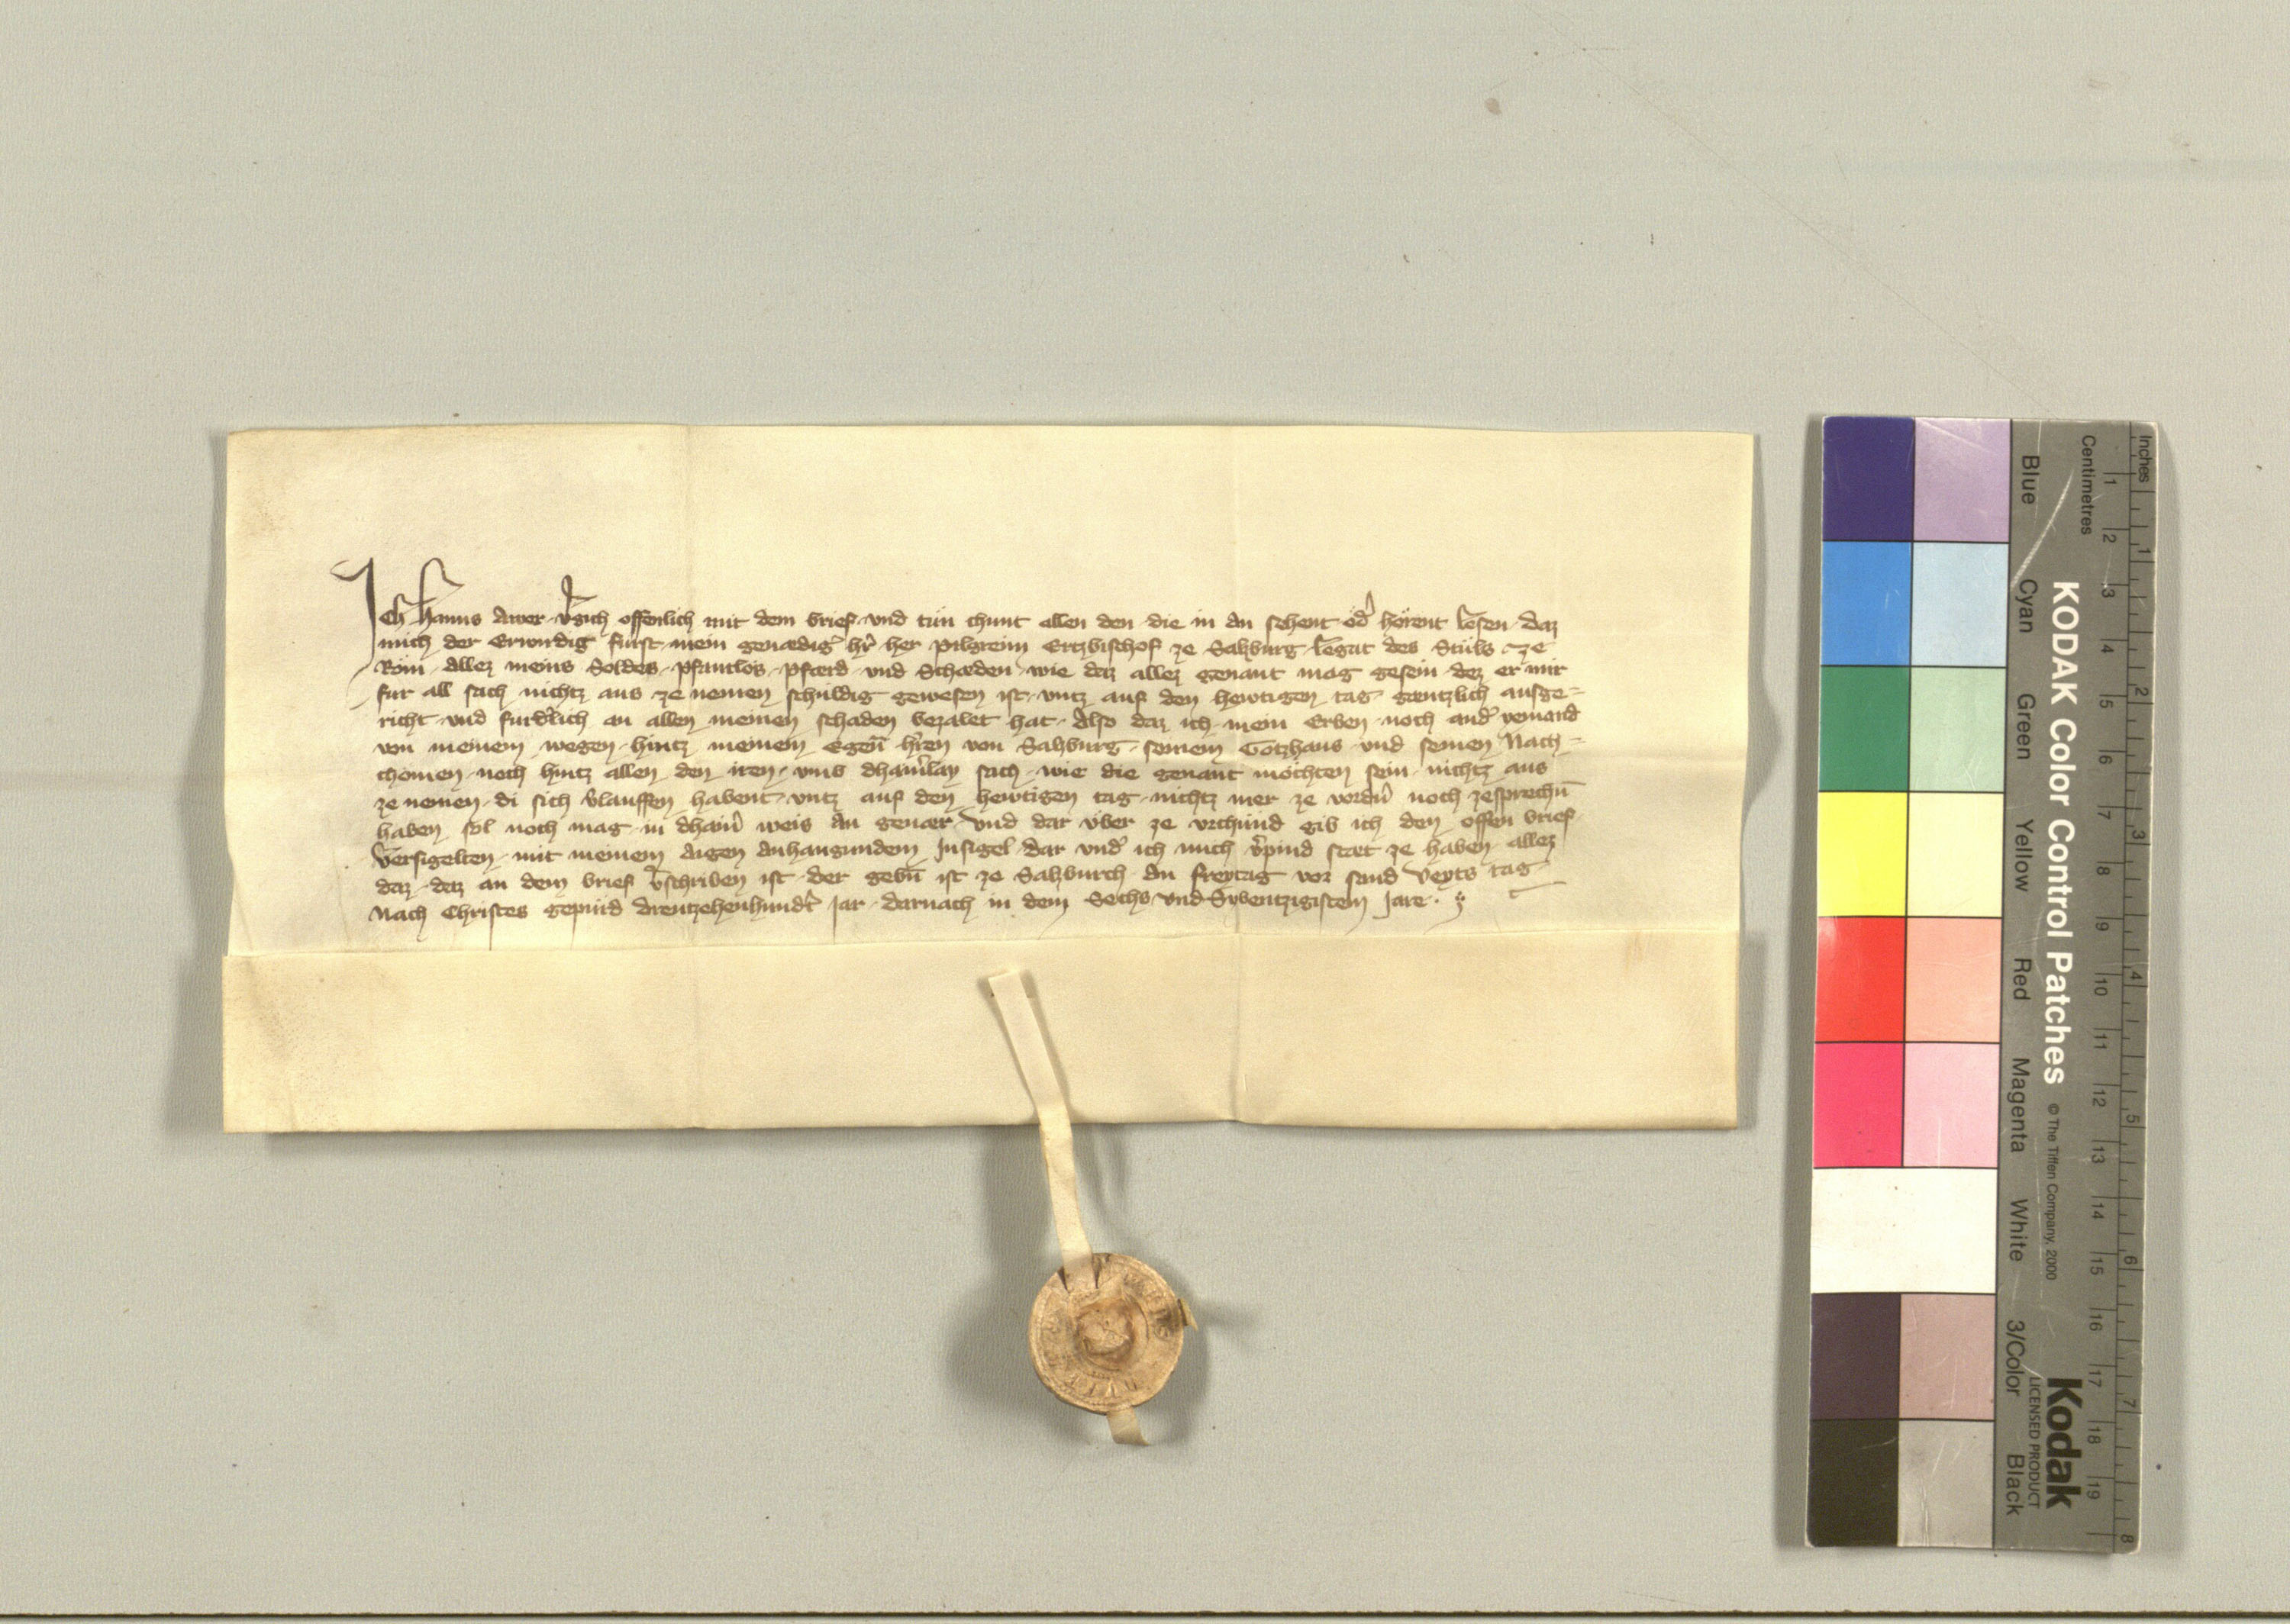 Ich Hanns Awer v̾gich offenlich mit dem brief und tun chunt allen den die in an sehent od̾ hörent lesen daz
mich der Erwirdig fürst mein genædig̾ hr̾ her Pilgreim Ertzbischof ze Salzburg legat des Stuls ze
Rom allez meins Soldes pfantlos pfærd und Schæden wie daz allez genant mag gesein dez er mir
fur all sach nichtz aus ze nemen schuldig gewesen ist untz auf den hewtigen tag gæntzlich ausge=
richt und furdłich an allen meinen schaden bezalet hat Also daz ich mein Erben noch and̾ yemand
von meinem wegen hintz meinem Egen̄ hr̾ren von Salzburg seinem Gotzhaus und seinen Nach=
chomen noch hintz allen den iren umb dhain̾lay sach wie die genant möchten sein nichtz aus
ze nemen di sich v̾lauffen habent untz auf den hewtigen tag nichtz mer ze vordn̾ noch zesprechn̄
haben sol noch mag in dhain̾ weis an genær Und dar über ze urchund gib ich den offen brief
Versigelten mit meinem aigen anhangundem Insigel dar und̾ ich mich v̾pind stæt ze haben allez
daz daz an dem brief v̾schriben ist der gebn̄ ist ze Salzburch an freytag vor sand Veyts tag
Nach Christes gepurd drewtzehenhund̾t Jar darnach in dem Sechs und Sybentzigistem Jare
Inches
Centimetres
1 2 3 4 5 6 7 8 9 10 11 12 13 14 15 16 17 18 19
1 2 3 4 5 6 7 8
Blue Cyan Green Yellow Red Magenta White 3/Color Black
KODAK Color Control Patches © The Tiffen Company, 2000
Kodak
LICENSED PRODUCT